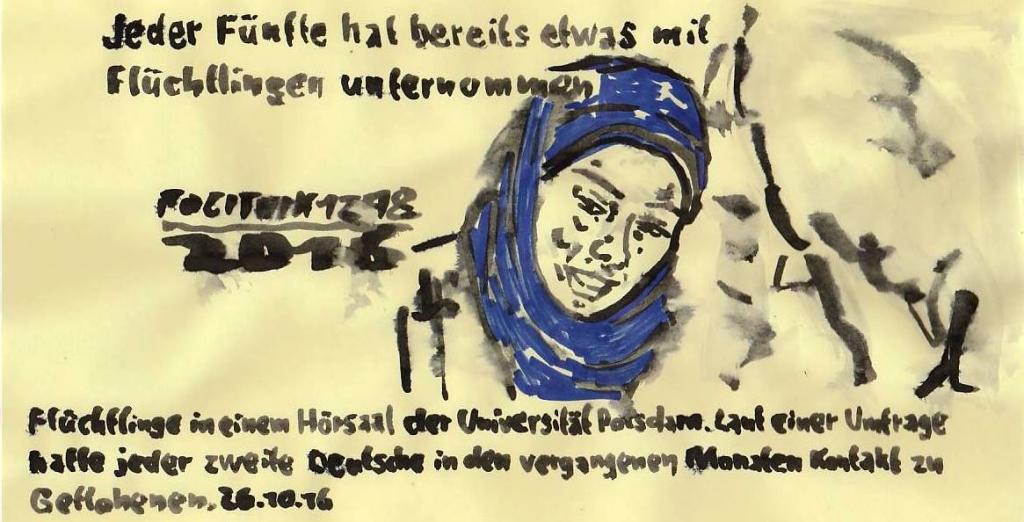 Jeder Fünfte hat bereits etwas mit
Flüchtlingen unternommen
2016
Flüchtlinge in einem Hörsaal der Universität Potsdam. Laut einer Umfrage
hatte jeder zweite Deutsche in den vergangenen Monaten Kontakt zu
Geflohenen. 26.10.16